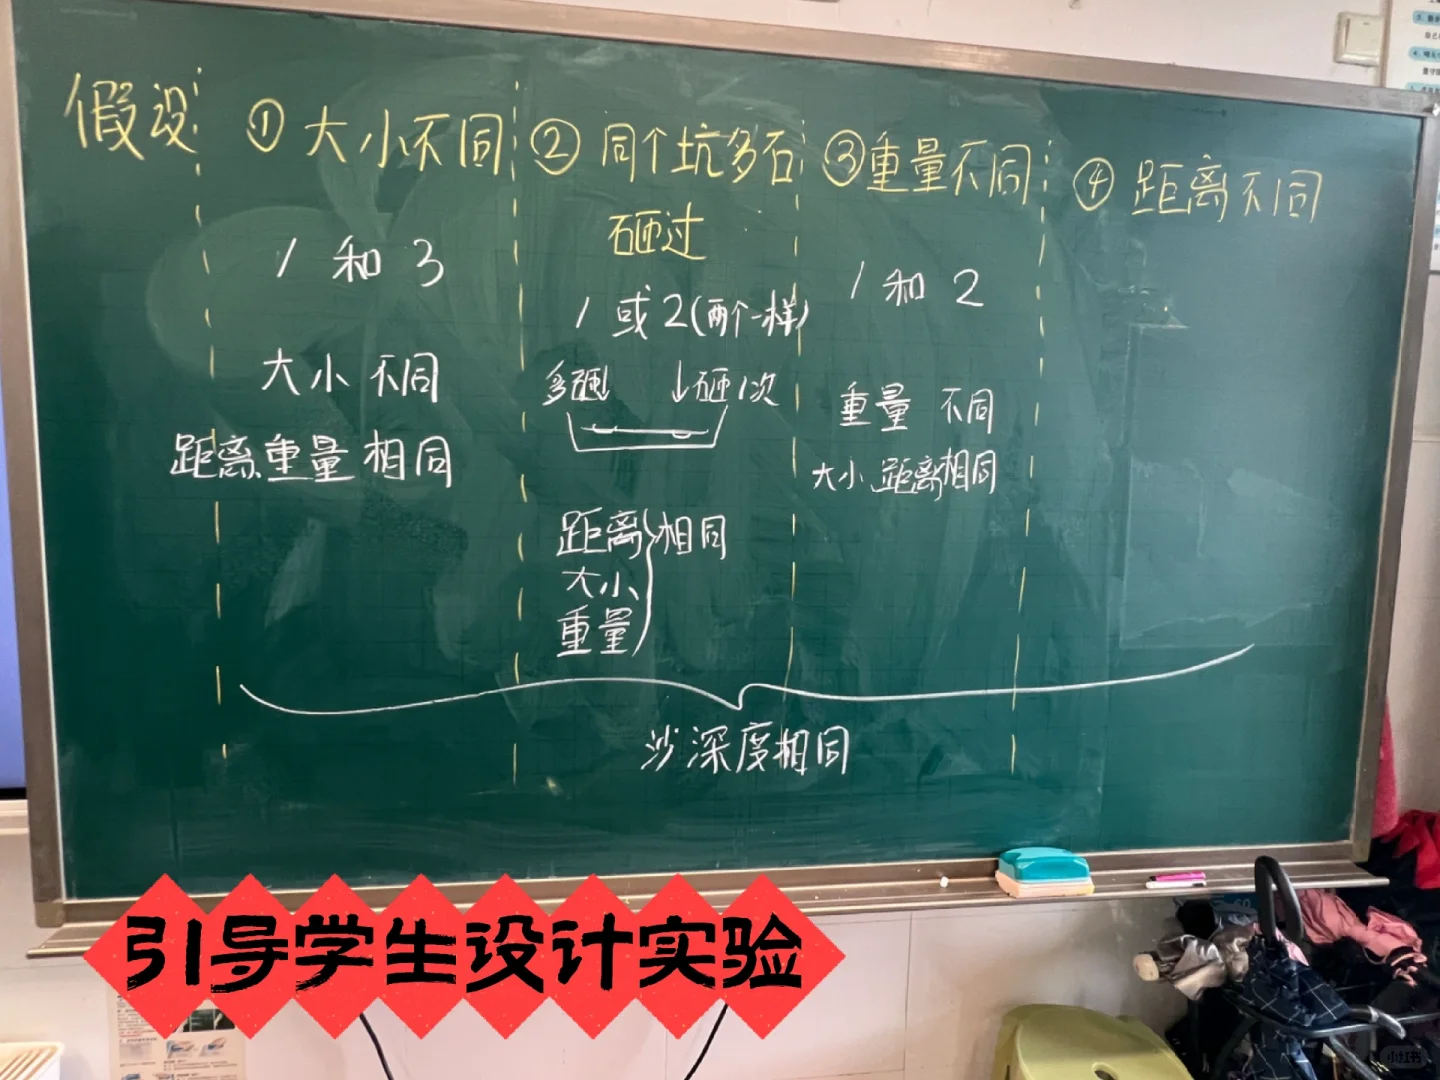 假设 ①大小不同 ②同个坑多石 ③重量不同 ④距离不同
砸过
1和3
1或2(两个一样)
1和2
大小不同
多砸↓ ↓砸1次
重量不同
距离、重量相同
大小、距离相同
距离
大小
重量
相同
沙深度相同
引导学生设计实验
小红书